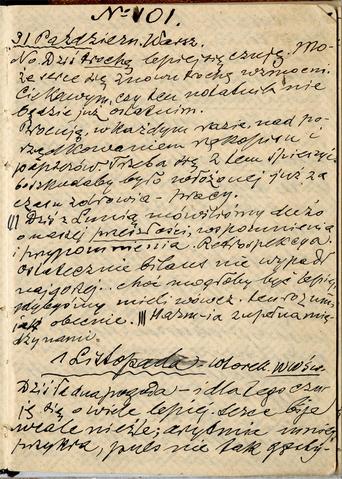 No 101.
31 Październ. Warsz.
No. Dziś trochę lepiej się czuję. Mo-
że serce się znowu trochę wzmocni.
Ciekawym, czy ten notatnik nie
będzie już ostatnim.
Pracuję, w każdym razie, nad po-
rządkowaniem rękopisów i
papierów. Trzeba się z tem śpieszyć,
bo szkoda by było włożonej już za
czasu zdrowia - pracy.
Dziś z Lunią mówiliśmy dużo
o naszej przeszłości, wspomnienia
i przypomnienia. Retrospekcja.
Ostatecznie bilans nie wypadł
najgorzej.. choć mogłoby być lepiej,
gdybyśmy mieli wówcz. ten rozum,
jak obecnie.
1 Listopada - wtorek
Dziś ładna pogoda - i dlatego czu-
ję się o wiele lepiej. Serce bije
wcale nieźle; arytmia mniej
przykra, puls nie tak